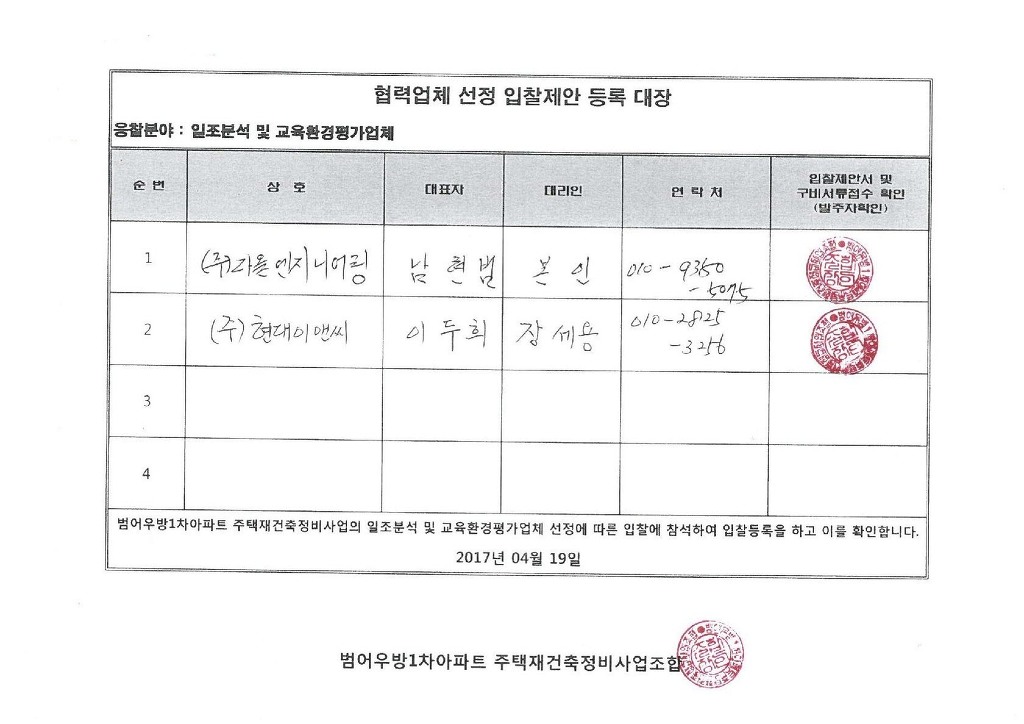 협력업체 선정 입찰제안 등록 대장
응찰분야 : 일조분석 및 교육환경평가업체
순 번 상 호 대표자 대리인 연 락 처 입찰제안서 및
구비서류접수 확인
(발주자확인)
1 (주)라온엔지니어링 남 현 범 본 인 010-9350
-5075
2 (주)현대이앤씨 이 두 희 장 세 용 010-2825
-3256
3
4
범어우방1차아파트 주택재건축정비사업의 일조분석 및 교육환경평가업체 선정에 따른 입찰에 참석하여 입찰등록을 하고 이를 확인합니다.
2017년 04월 19일
범어우방1차아파트 주택재건축정비사업조합